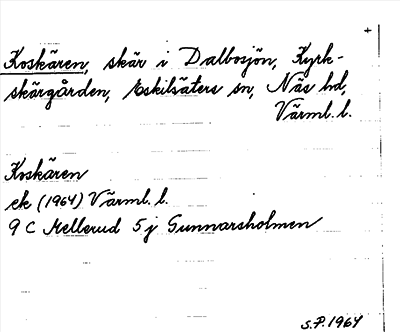 Koskären, skär i Dalbosjön, Kyrk-
skärgården, Eskilsäters sn, Näs hd,
Värml. l.
Koskären
ek (1964) Värml. l.
9 C Mellerud 5 j Gunnarsholmen
S.P. 1964